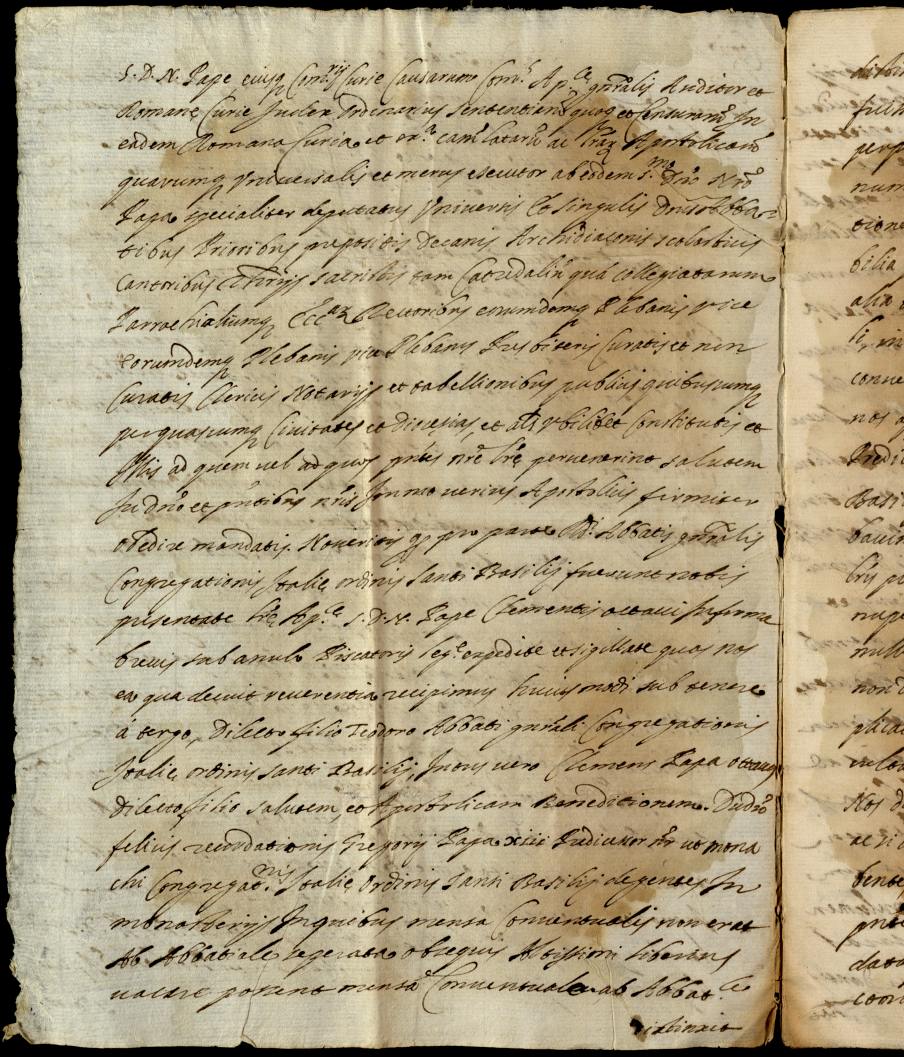 S. D. N. Pape, eiusq Com.rij Curie Causarum Com.s Ap.ce gn̄ralis Auditor et
Romanę Curie Judex Ordinarius sententiarū quoq et Censurarū In
eadem Romana Curia et ex.a
quarumq Vniversalis et merus executor ab eodem S.mo Dn̄o Nr̄o
Papa specialiter deputatus Vniversis et singulis Dn̄is Abba-
tibus Prioribus prepositis Decanis Archidiaconis scolasticis
Cantoribus sacristis tam Catedaliū quā collegiatarum
Parrochialiumq Rectoribus eorumdemq Plebanis vice
eorumdemq Plebanis vice Plebanis Presbiteris Curatis et non
Curatis Clericis Notarijs et tabellionibus publicis quibuscumq
per quascumq Civitates et dioceses, et als vbilibet Constitutis et
Illis ad quem vel ad quos pn̄tes nr̄e lr̄ę pervenerint salutem
In dn̄o et pn̄tibus nr̄is Immo verius Apostolicis firmiter
obedire mandatis. Noveritis q pro parte Abbatis gn̄ralis
Congregationis Italię ordinis santi Basilij fuerunt nobis
presentate lr̄ę Ap.ce S. D. N. Pape Clementis octavi In forma
brevis sub anulo Piscatoris expedite et sigillate quas nos
ea qua decuit reverentia recipimus huius modi sub tenore
à tergo, Dilecto filio Teodoro Abbati gn̄rali Congregationis
Italię ordinis santi Basilij, Intus vero Clemens Papa ottavus
dilecto filio salutem, et Apostolicam Beneditionem. Dudū
felicis recordationis Gregorij Papa xiii Prediccessor nr̄ ut mona
chi Congregat.nis Italię Ordinis Santi Basilij degentes In
monasterijs In quibus mensa Conventualis non erat
Ab Abbatiale seperata obsequijs Altissimi liberius
vacare possent mensā Conventuale ab Abbat.le